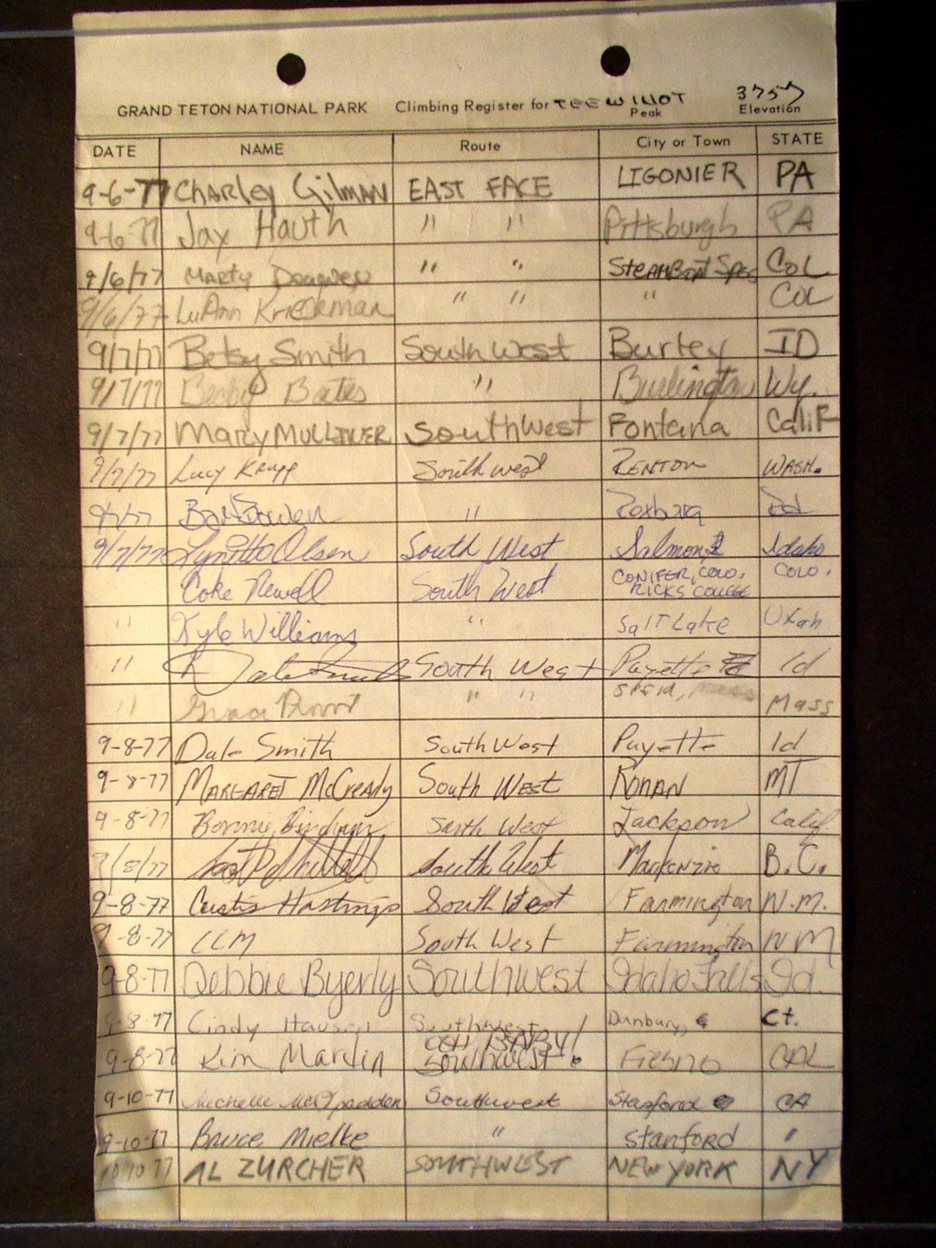 GRAND TETON NATIONAL PARK Climbing Register for TEEWINOT Peak 3757 Elevation
DATE NAME Route City or Town STATE
9-6-77 Charley Gilman EAST FACE LIGONIER PA
9-6-77 Jay Hauth " " Pittsburgh PA
9/6/77 Marty " " STEAMBOAT Spgs COL
9/6/77 LuAnn Krieckman " " " COL
9/7/77 Betsy Smith Southwest Burley ID
9/7/77 Becky Bates " Burlington Wy.
9/7/77 Mary MULLINER Southwest Fontana Calif
9/7/77 Lucy Krupp Southwest RENTON WASH.
9/7/77 " Rexburg Id
9/7/77 Lynette Olsen South West Salmon Idaho
Coke Newell South West CONIFER, COLO. RICKS COLLEGE COLO.
" Kyle Williams " Salt Lake Utah
" Dale Smith South West Payette Id
" " " Mass
9-8-77 Dale Smith South West Payette Id
9-8-77 MARGARET McCready South West RONAN MT
9-8-77 Bonnie South West Jackson Calif
9/8/77 South West Mackenzie B.C.
9-8-77 Curtis Hastings South West Farmington N.M.
9-8-77 CCM South West Farmington NM
9-8-77 Debbie Byerly Southwest Idaho Falls Id.
9-8-77 Cindy Hausen Southwest Danbury, Ct.
9-8-77 Kim Martin OOH BABY! Southwest Fresno CAL
9-10-77 Michelle McSpadden Southwest Stanford CA
9-10-77 Bruce Mielke " Stanford "
10 77 AL ZURCHER SOUTHWEST NEW YORK NY